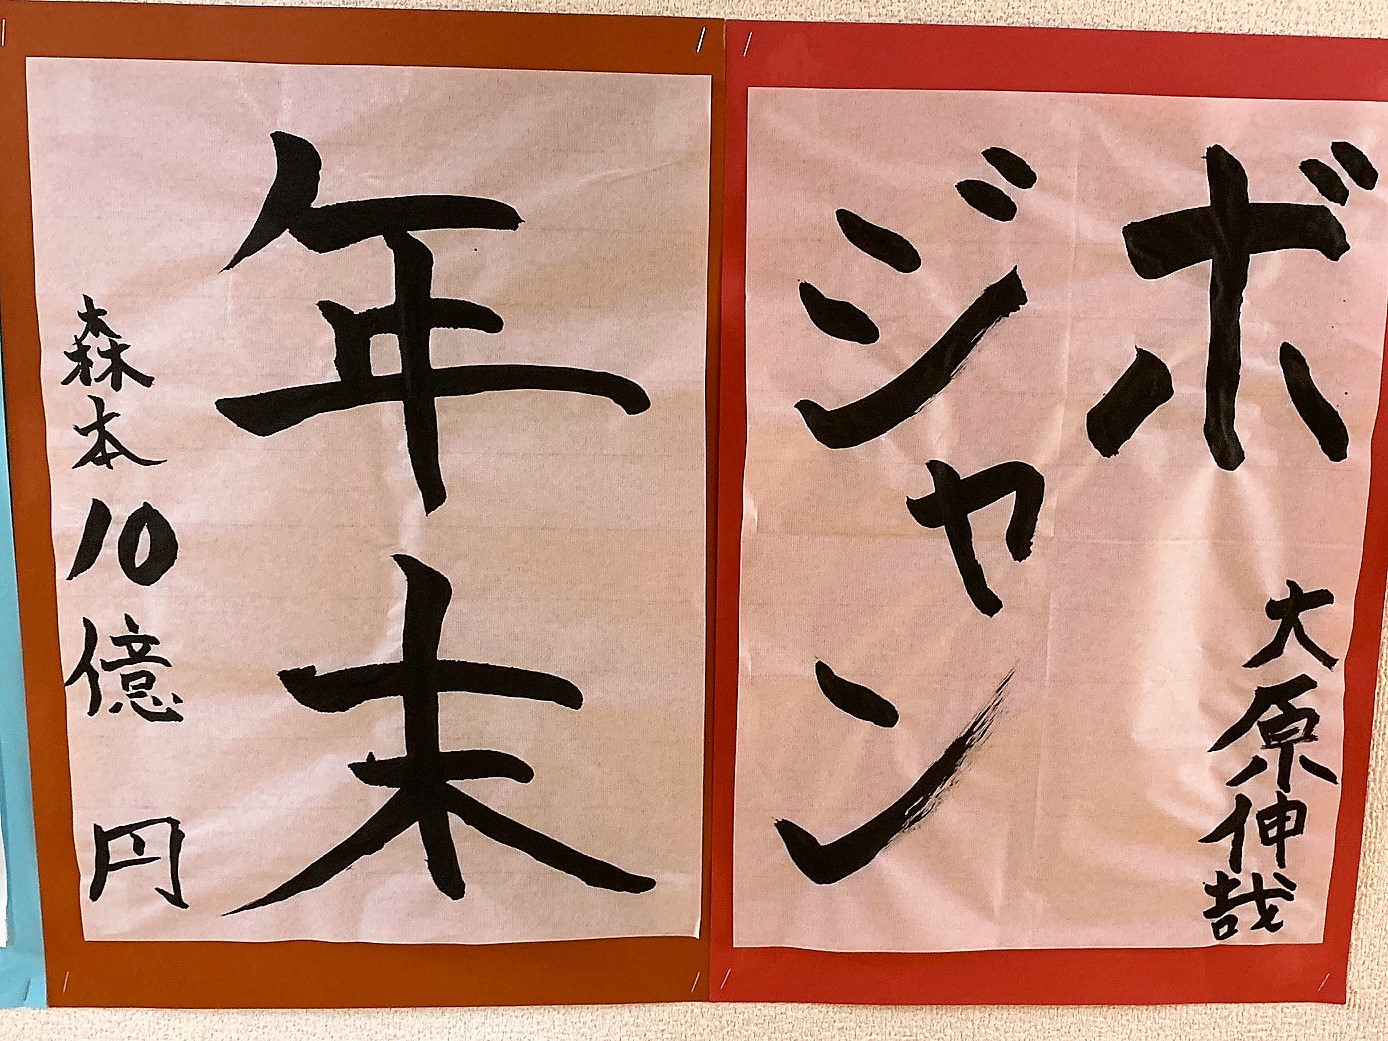 年末
森本10億円
ボ
ジャン
大原伸哉